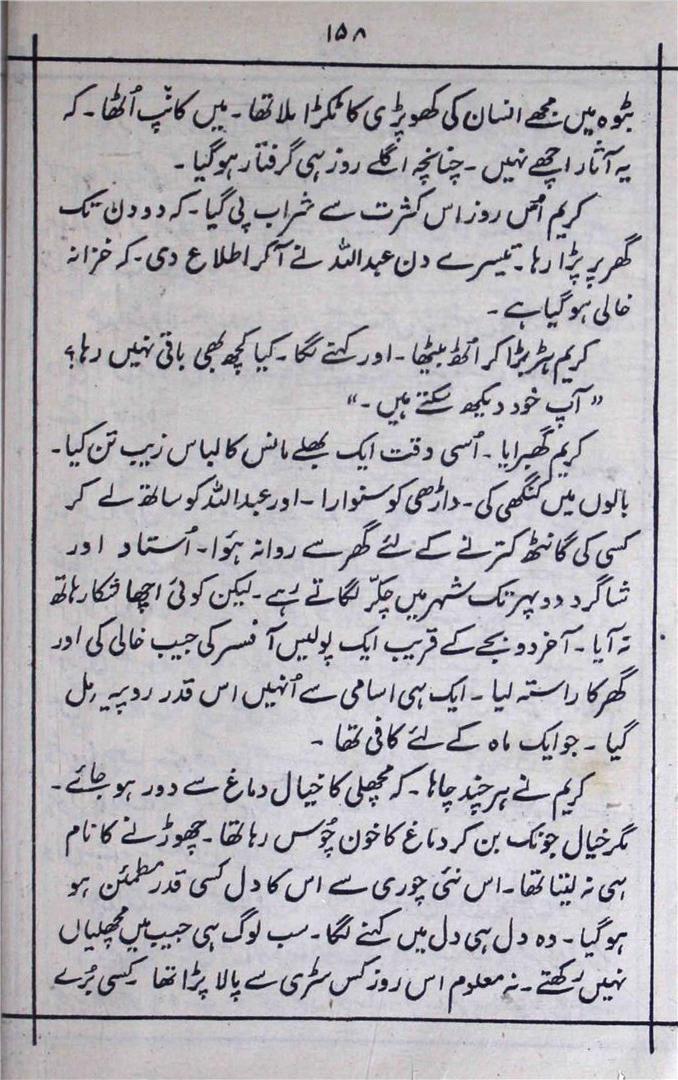 ۱۵۸
بٹوہ میں مجھے انسان کی کھوپڑی کا ٹکڑا ملا تھا۔ میں کانپ اُٹھا۔ کہ
یہ آثار اچھے نہیں۔ چنانچہ اگلے روز ہی گرفتار ہو گیا۔
کریم اُس روز اس کثرت سے شراب پی گیا۔ کہ دو دن تک
گھر پر پڑا رہا۔ تیسرے دن عبداللہ نے آ کر اطلاع دی۔ کہ خزانہ
خالی ہو گیا ہے۔
کریم ہڑبڑا کر اُٹھ بیٹھا۔ اور کہنے لگا۔ کیا کچھ بھی باقی نہیں رہا؟
”آپ خود دیکھ سکتے ہیں۔“
کریم گھبرایا۔ اُسی وقت ایک بھلے مانس کا لباس زیب تن کیا۔
بالوں میں کنگھی کی۔ داڑھی کو سنوارا۔ اور عبداللہ کو ساتھ لے کر
کسی کی گانٹھ کترنے کے لئے گھر سے روانہ ہؤا۔ اُستاد اور
شاگرد دوپہر تک شہر میں چکّر لگاتے رہے۔ لیکن کوئی اچھا شکار ہاتھ
نہ آیا۔ آخر دو بجے کے قریب ایک پولیس آفسر کی جیب خالی کی اور
گھر کا راستہ لیا۔ ایک ہی اسامی سے اُنہیں اس قدر روپیہ مل
گیا۔ جو ایک ماہ کے لئے کافی تھا۔
کریم نے ہر چند چاہا۔ کہ مچھلی کا خیال دماغ سے دور ہو جائے۔
مگر خیال جونک بن کر دماغ کا خون چُوس رہا تھا۔ چھوڑنے کا نام
ہی نہ لیتا تھا۔ اس نئی چوری سے اس کا دل کسی قدر مطمئن ہو
ہو گیا۔ وہ دل ہی دل میں کہنے لگا۔ سب لوگ ہی جیب میں مچھلیاں
نہیں رکھتے۔ نہ معلوم اس روز کس سڑی سے پالا پڑا تھا کسی بُرے